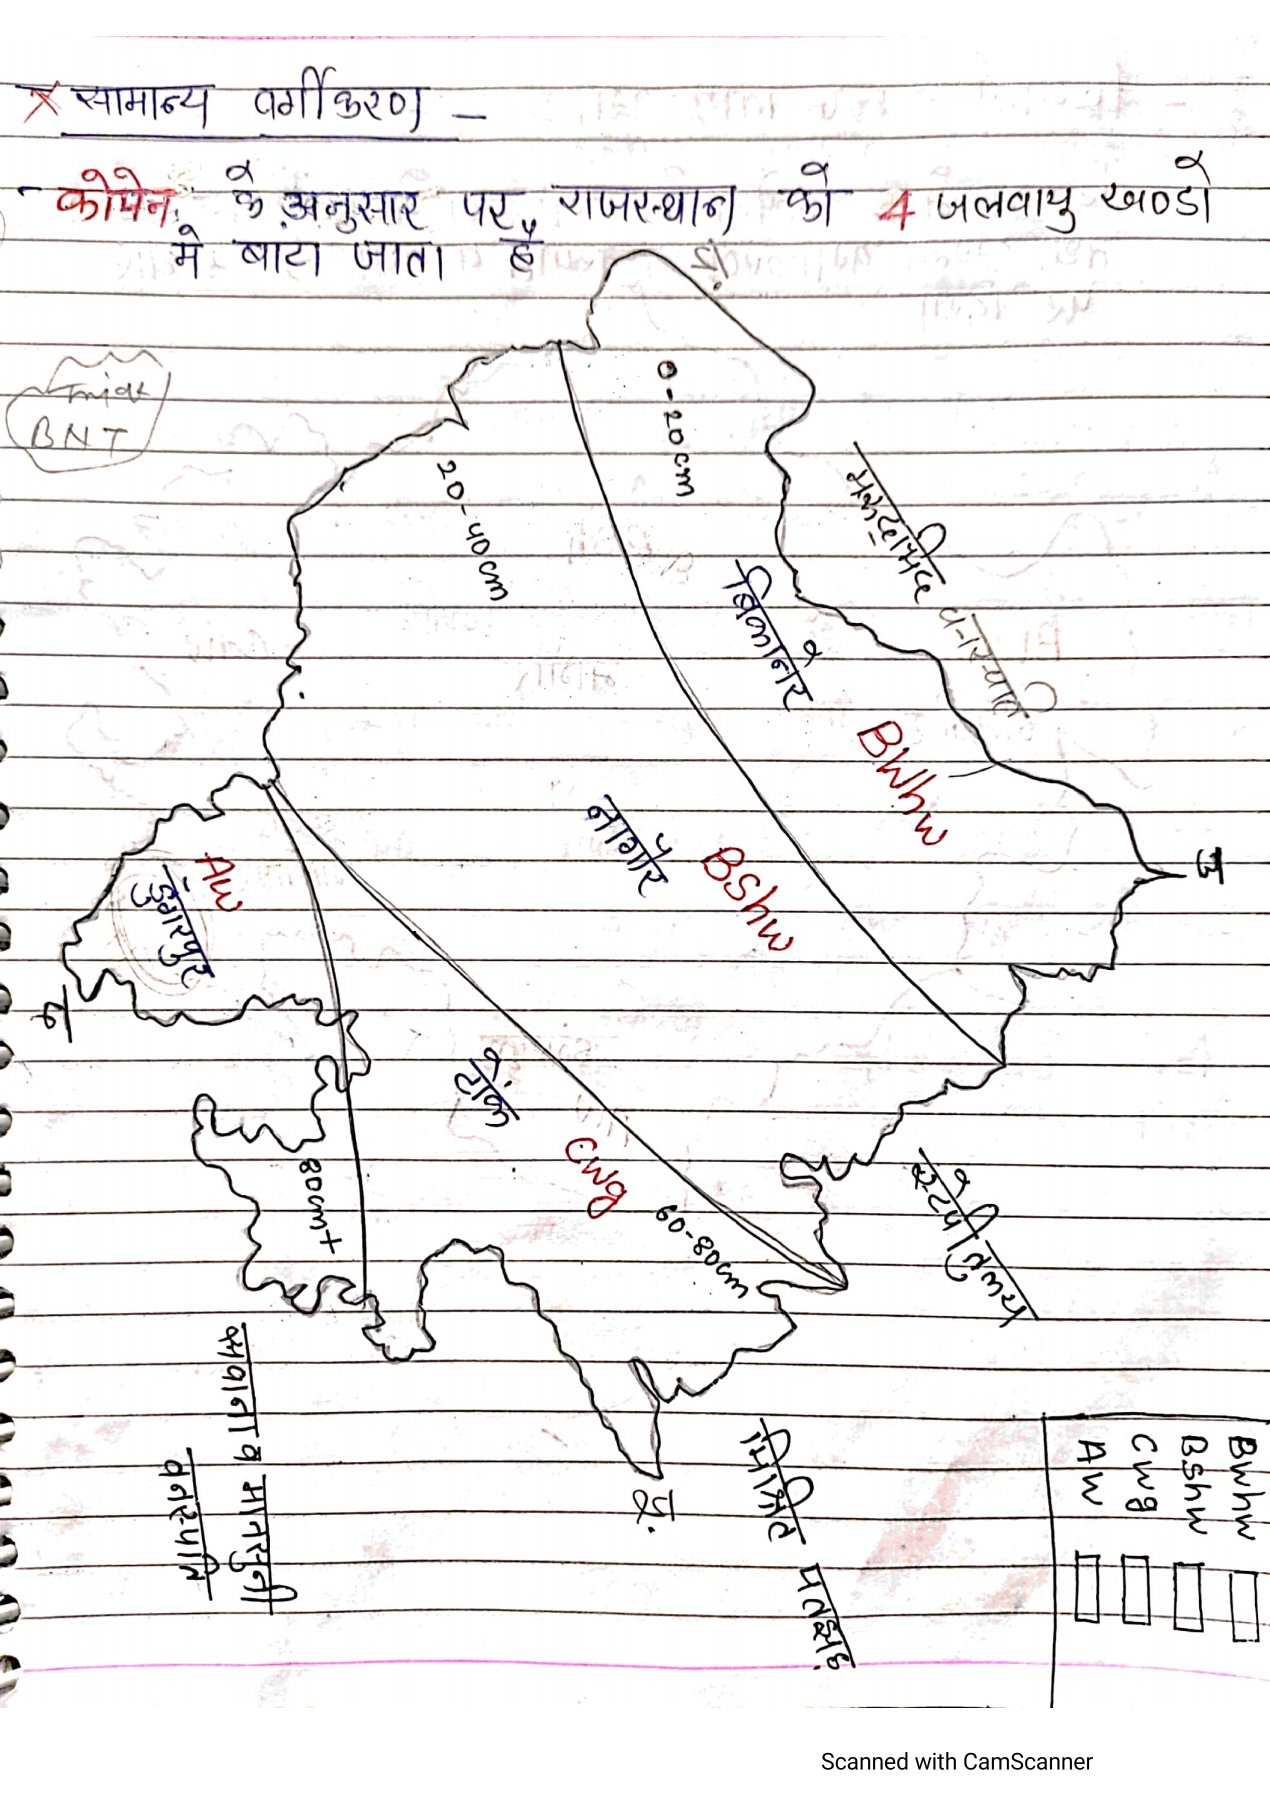 सामान्य वर्गीकरण -
- कोपेन के अनुसार पर राजस्थान को 4 जलवायु खण्डो
मे बाटा जाता है
Trick
BNT
प.
0-20cm
20-40cm
मरूदभिद वनस्पति
बिकानेर
BWhw
नागौर
BShw
उ
Aw
डुंगरपुर
द
टोंक
Cwg
60-80cm
80cm+
स्टेपी तुल्य
सवाना व मानसुनी
वनस्पति
पू.
मिश्रित पतझड़
BWhw
BShw
Cwg
Aw
Scanned with CamScanner